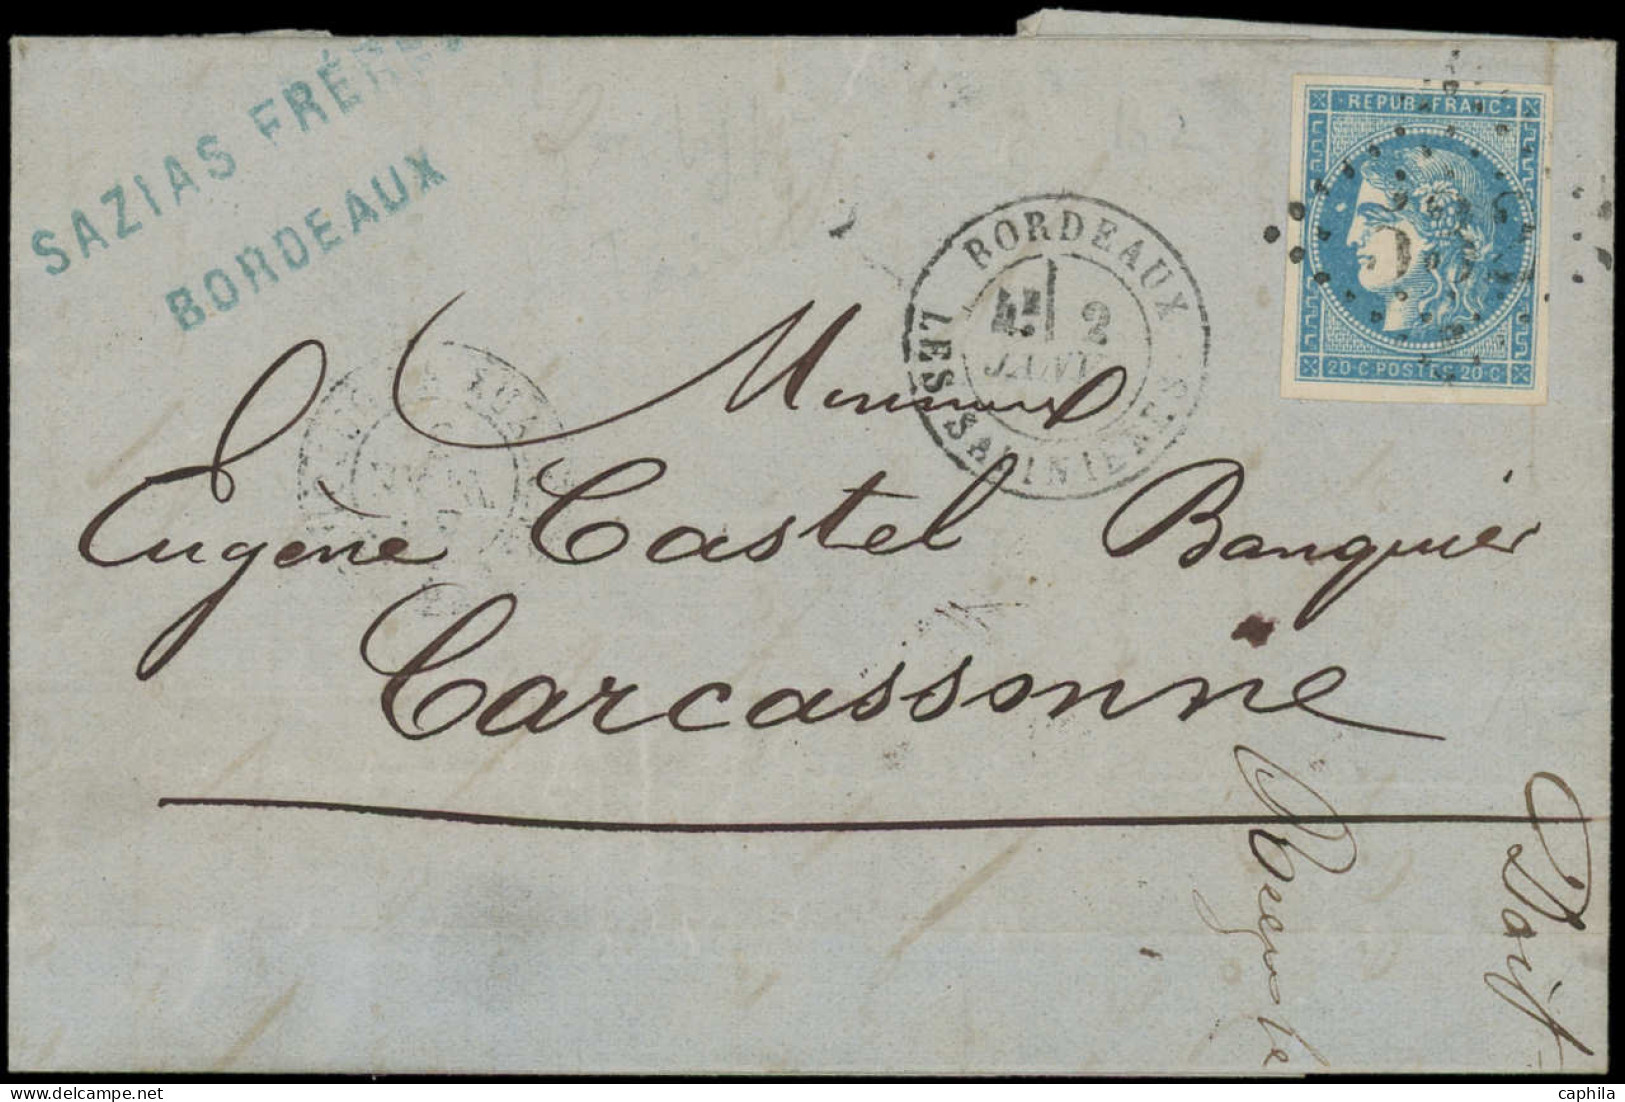 SAZIAS FRÈRES
BORDEAUX
REPUB FRANC
20·C POSTES 20·C
BORDEAUX
2
JANV
LES SALINIERES
Monsieur
Eugène Castel Banquier
Carcassonne
caphila